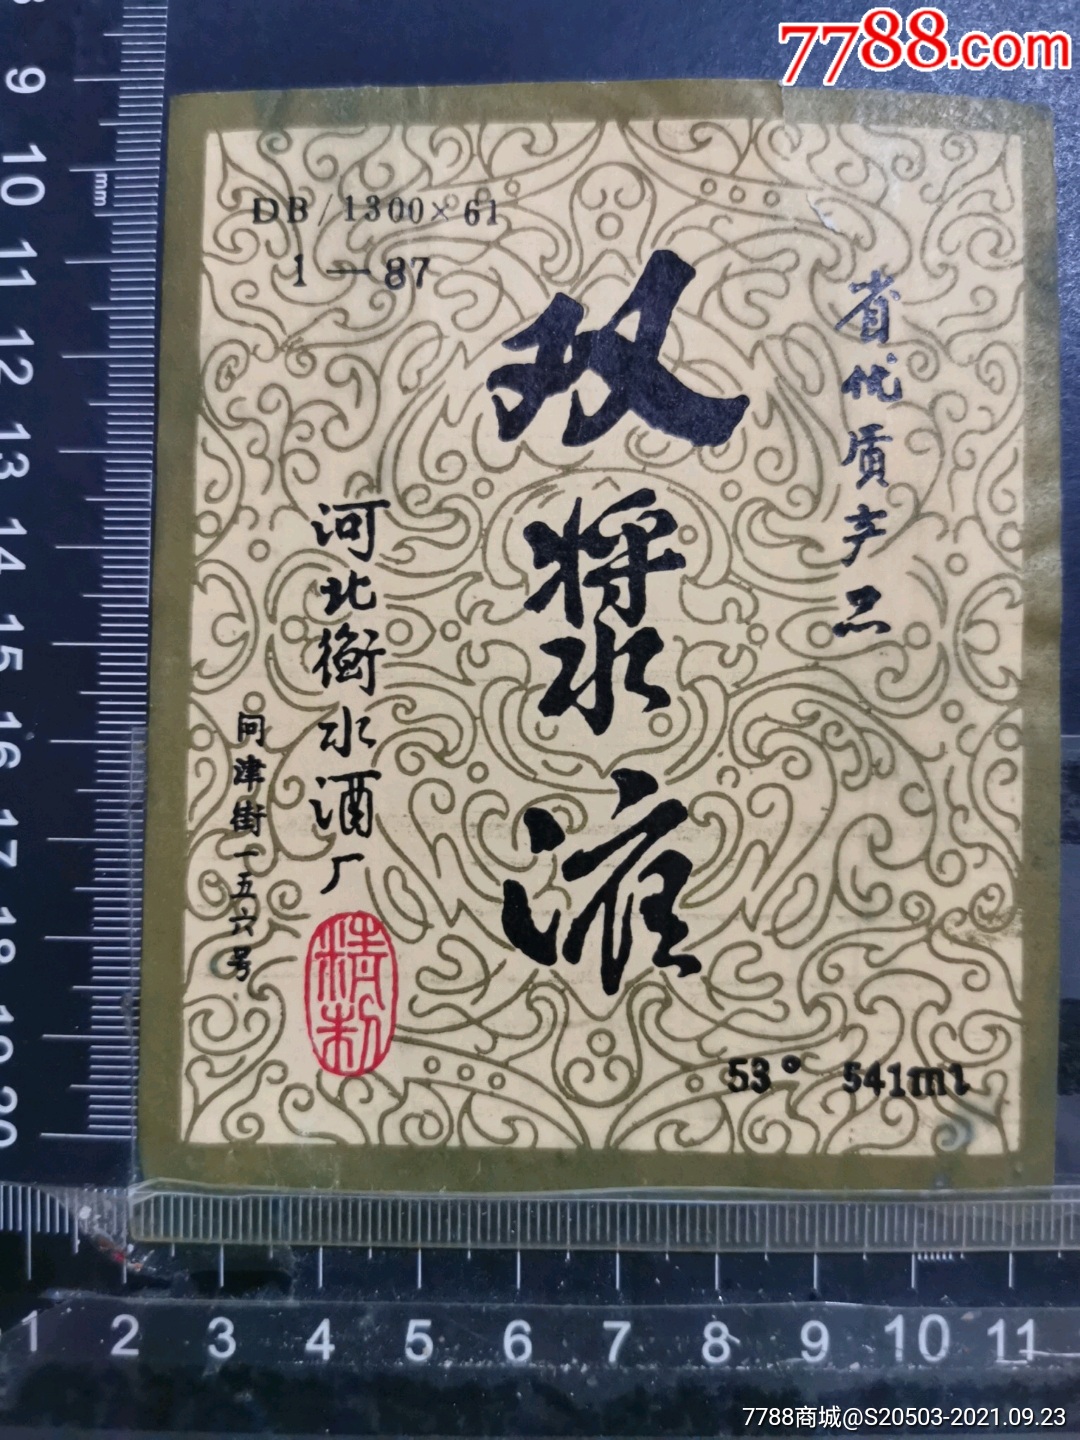 7788.com
DB/1300×61
1—87
省优质产品
双浆液
河北衡水酒厂
问津街一五六号
精制
53° 541ml
9 10 11 12 13 14 15 16 17 18 19 20
mm
1 2 3 4 5 6 7 8 9 10 11
7788商城@S20503-2021.09.23